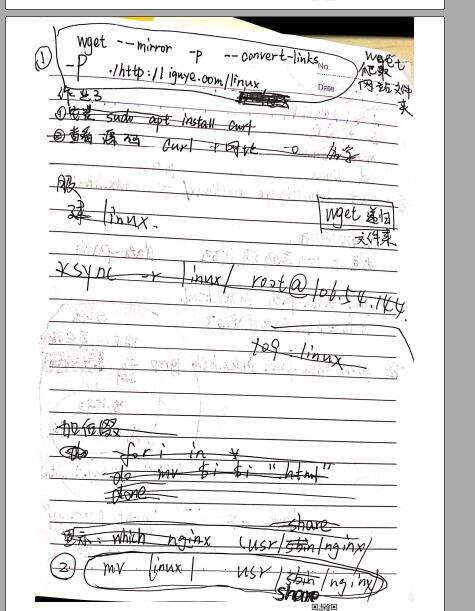 ① wget --mirror -p --convert-links
-P ./http://iguye.com/linux
No.
Date
wget
爬取
网站文件
夹
作业3
①安装 sudo apt install curl
②查看源码 curl +网址 -o 名字
服
linux.
wget 递归
文件夹
rsync -r linux/ root@106.54.144.
:linux
加后缀
for i in *
do mv $i $i ".html"
done
share
显示: which nginx (usr/sbin/nginx/
② mv linux/ usr/sbin/nginx/
share